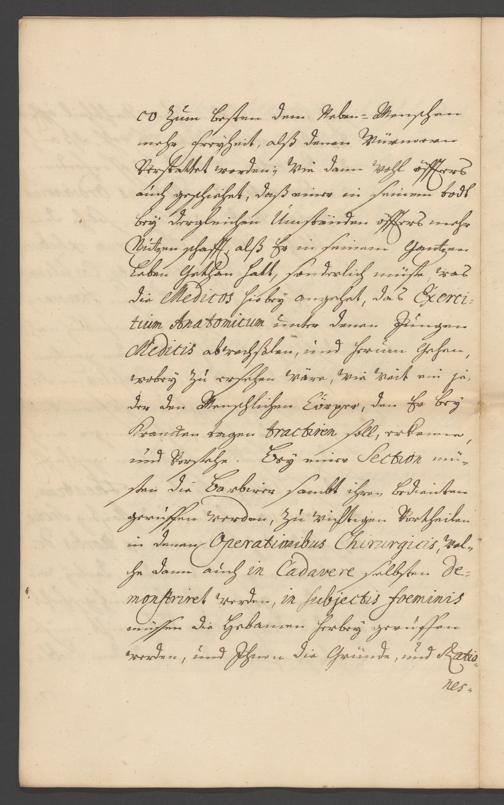 co zum besten dem Neben-Menschen
mehr freyheit, alß denen Würmern
Verstattet werden; Wie dann wohl öffters
auch geschiehet, daß einer in seinem todt
bey dergleichen Umständen öffters mehr
Nutzen schafft, alß Er in seinem Gantzen
Leben Gethan hatt, sonderlich müste was
die Medicos hiebey angehet, das Exerci-
tium Anatomicum unter denen Jungen
Medicis abwechßlen, und herum Gehen,
wobey zu ersehen wäre, wie weit ein je-
der den Menschlichen Cörper, den Er bey
Krancken tagen tractiren soll, erkenne,
und Verstehe. Bey einer Section mü-
sten die Barbirer sambt ihren bedienten
geruffen werden, zu wichtigen Vortheilen
in denen Operationibus Chirurgicis, wel-
che dann auch in Cadavere selbsten de-
monstriret werden, in subjectis foeminis
müssen die Hebamen herbey geruffen
werden, und Ihnen die Gründe, und Ratio-
nes-